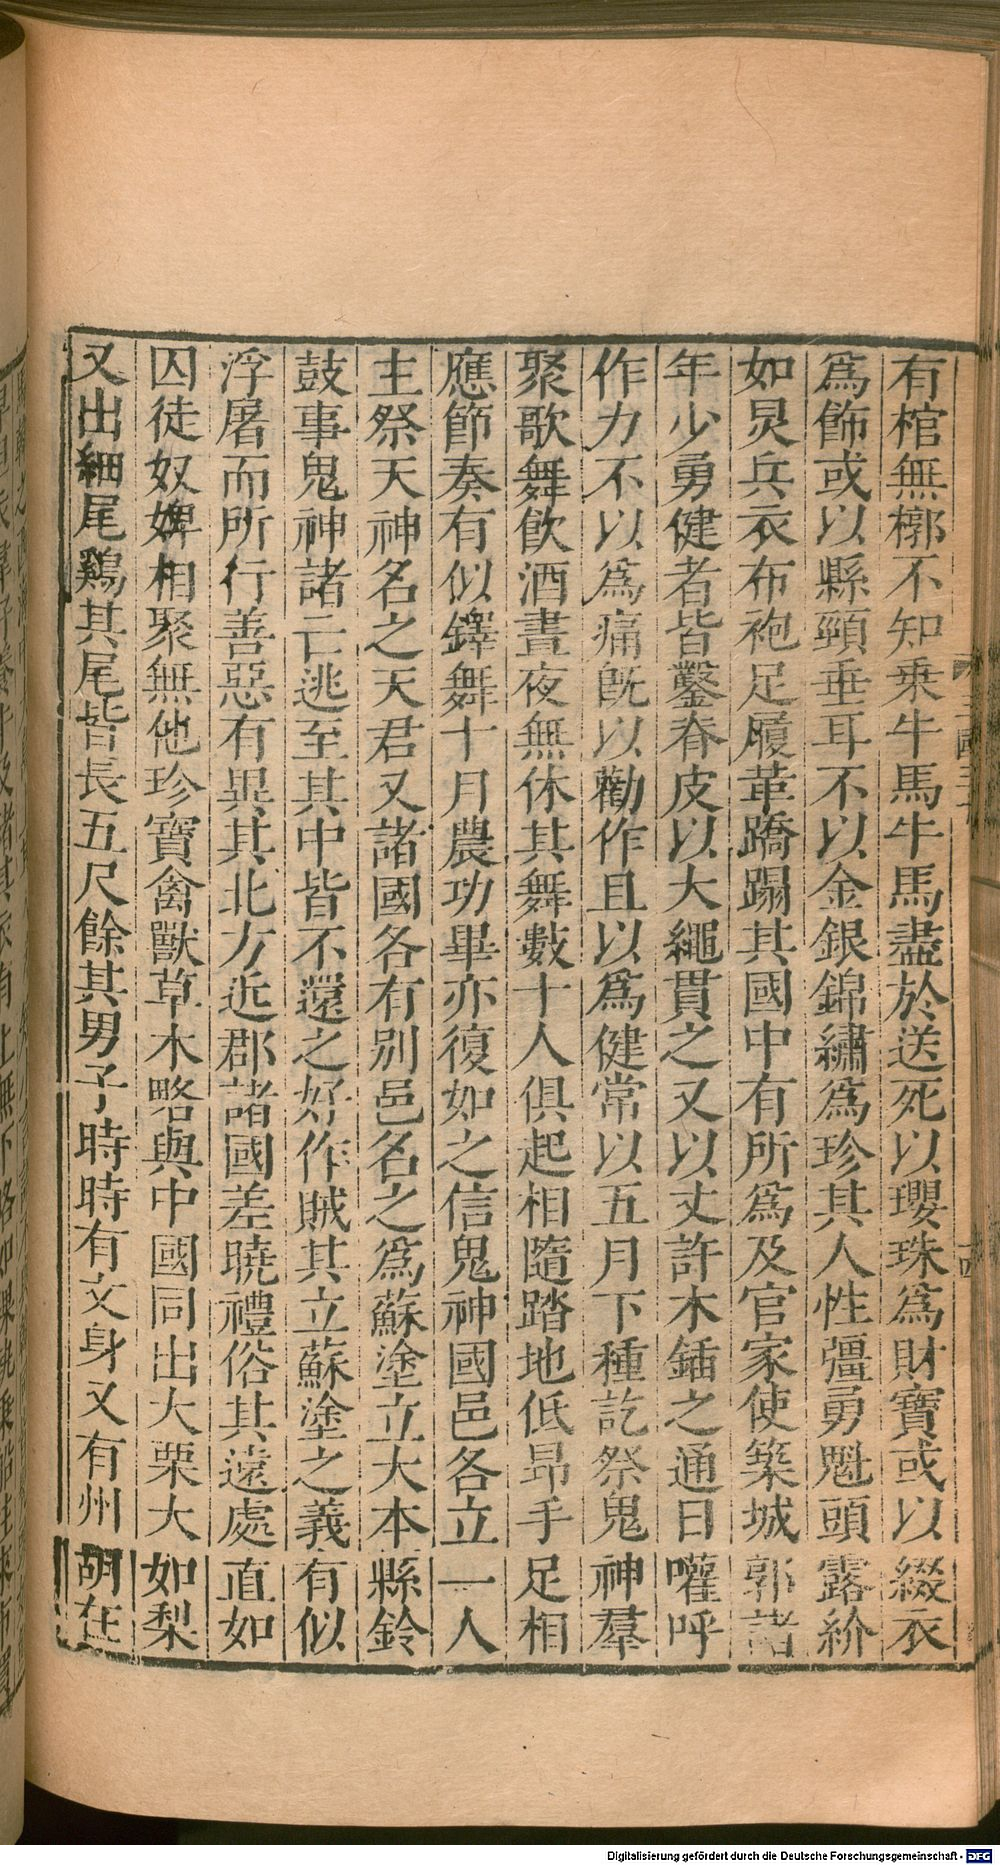 有棺無槨不知乗牛馬牛馬盡於送死以瓔珠爲財寶或以綴衣
爲飾或以縣頸垂耳不以金銀錦繡爲珍其人性彊勇魁頭露紒
如炅兵衣布袍足履革蹻蹋其國中有所爲及官家使築城郭諸
年少勇健者皆鑿脊皮以大繩貫之又以丈許木鍤之通日嚾呼
作力不以爲痛旣以勸作且以爲健常以五月下種訖祭鬼神羣
聚歌舞飲酒晝夜無休其舞數十人俱起相隨踏地低昂手足相
應節奏有似鐸舞十月農功畢亦復如之信鬼神國邑各立一人
主祭天神名之天君又諸國各有別邑名之爲蘇塗立大本縣鈴
鼓事鬼神諸亡逃至其中皆不還之好作賊其立蘇塗之義有似
浮屠而所行善惡有異其北方近郡諸國差曉禮俗其遠處直如
囚徒奴婢相聚無他珍寶禽獸草木略與中國同出大栗大如梨
又出細尾鷄其尾皆長五尺餘其男子時時有文身又有州胡在
Digitalisierung gefördert durch die Deutsche Forschungsgemeinschaft - DFG